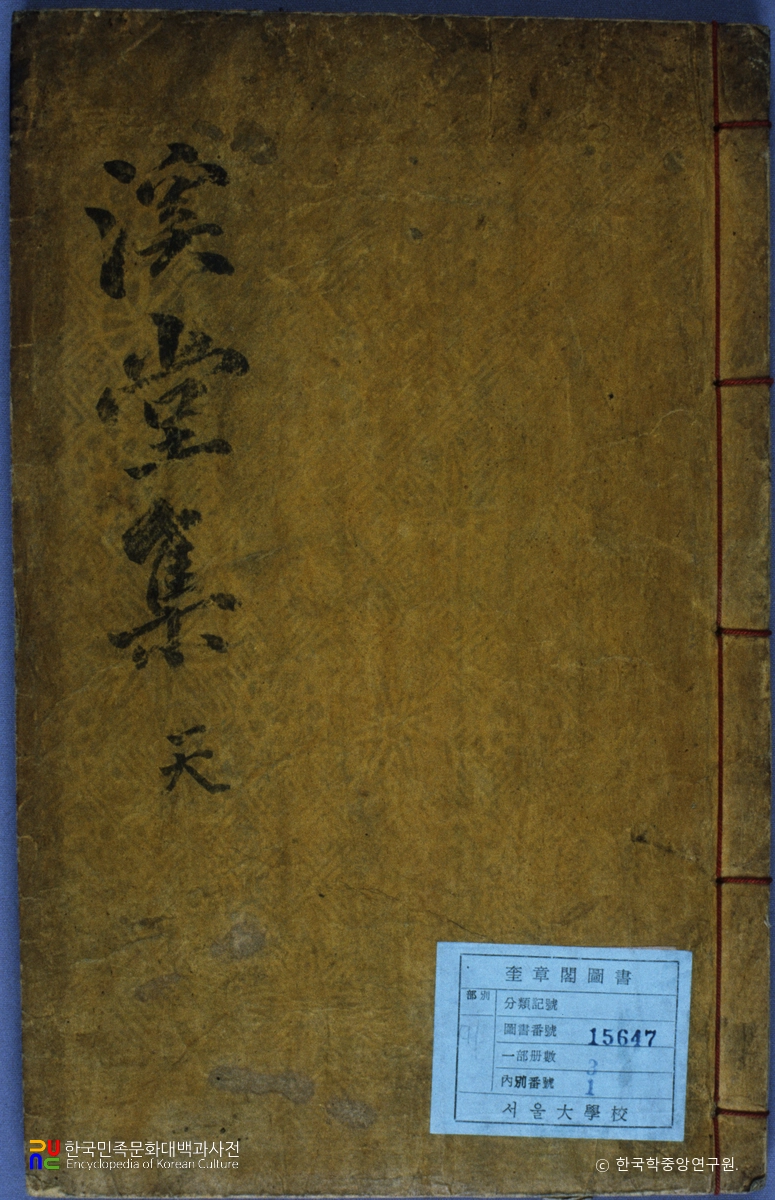 溪堂集
天
奎章閣圖書
部別
分類記號
圖書番號 15647
一部册數 3
內別番號 1
서울大學校
한국민족문화대백과사전
Encyclopedia of Korean Culture
ⓒ 한국학중앙연구원.